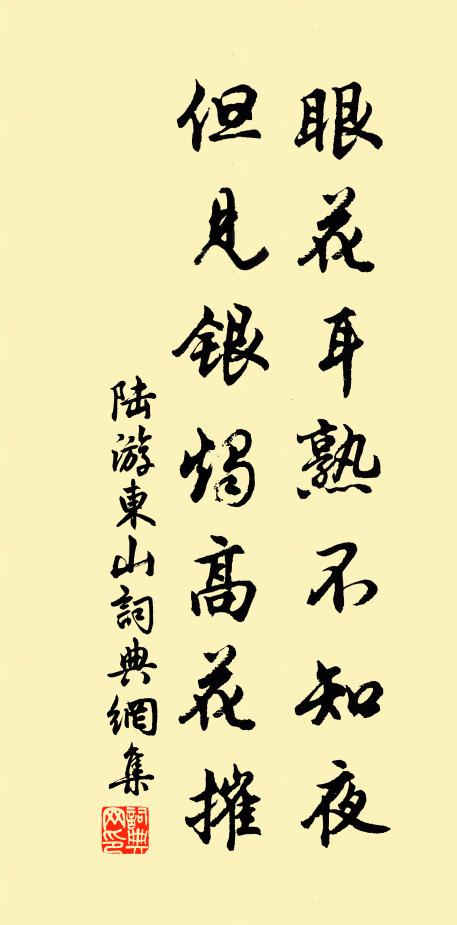 眼花耳熟不知夜
但見銀燭高花摧
陆游東山詞典網集
詞典网印